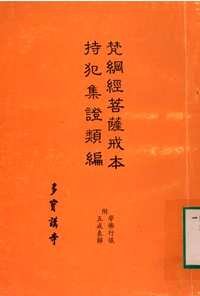 梵網經菩薩戒本
持犯集證類編
附
學佛行儀
五戒表解
多寶講寺